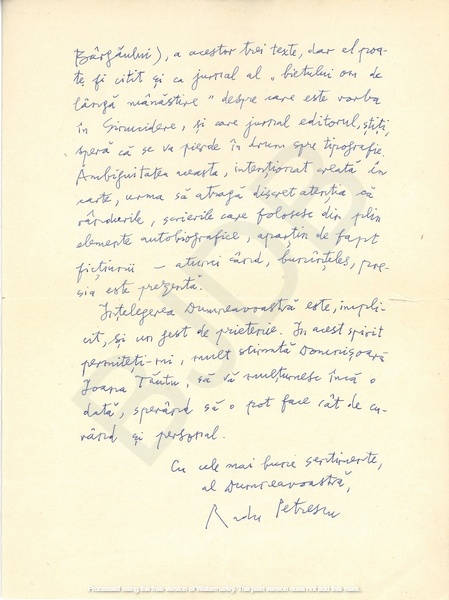 Bârgăului), a acestor trei texte, dar el poa-
te fi citit și ca jurnal al „bietului om de
lângă mănăstire" despre care este vorba
în Sinucidere, și care jurnal editorul, știți,
speră că se va pierde în drum spre tipografie.
Ambiguitatea aceasta, intenționat creată în
carte, urma să atragă discret atenția că
rândurile, scrierile care folosesc din plin
elemente autobiografice, aparțin de fapt
ficțiunii – atunci când, bineînțeles, poe-
zia este prezentă.
Înțelegerea Dumneavoastră este, impli-
cit, și un gest de prietenie. În acest spirit
permiteți-mi, mult stimată Domnișoară
Ioana Tăutu, să vă mulțumesc încă o
dată, sperând să o pot face cât de cu-
rând și personal.
Cu cele mai bune sentimente,
al Dumneavoastră,
Radu Petrescu
BJDB